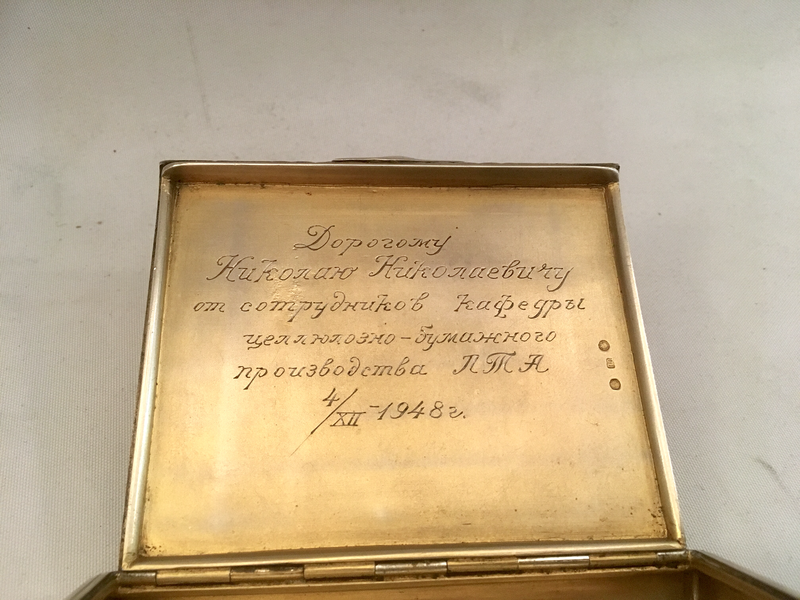 Дорогому
Николаю Николаевичу
от сотрудников кафедры
целлюлозно-бумажного
производства ЛТА
4/XII-1948г.